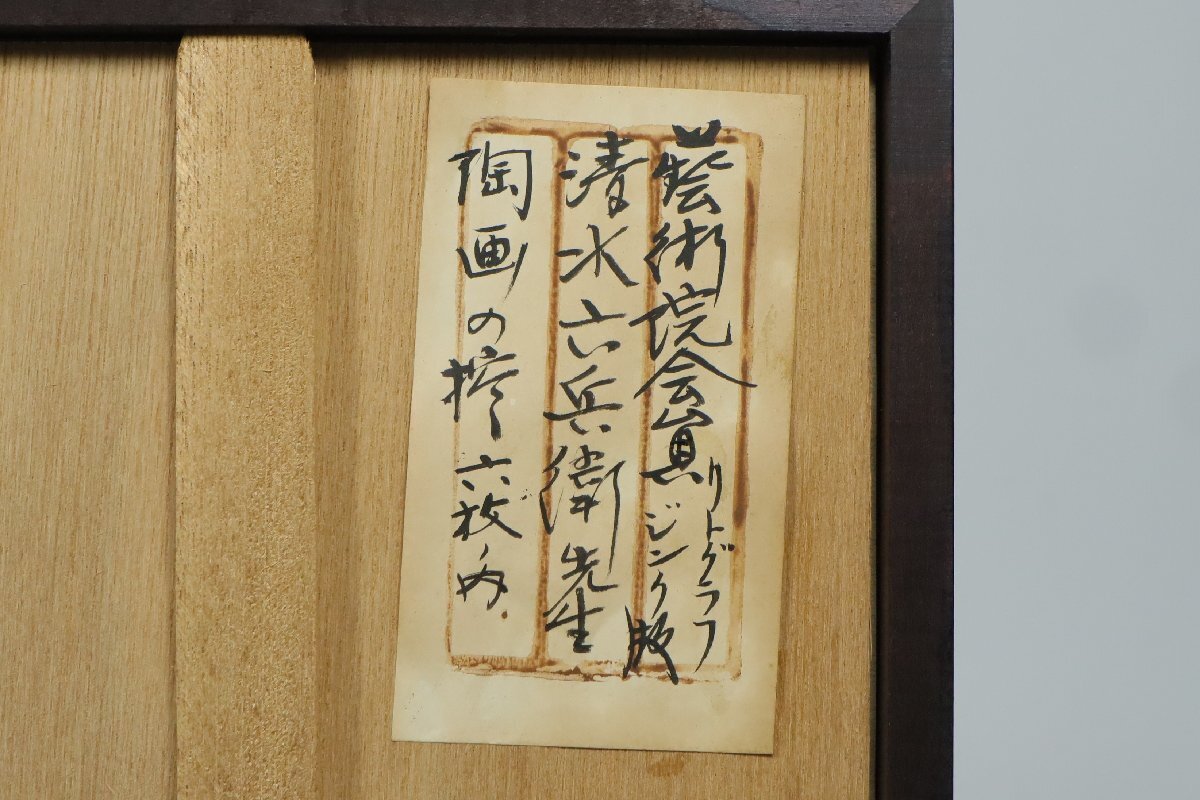 藝術院会員 リトグラフ ジンク版
清水六兵衛先生
陶画の控 六枚ノ内